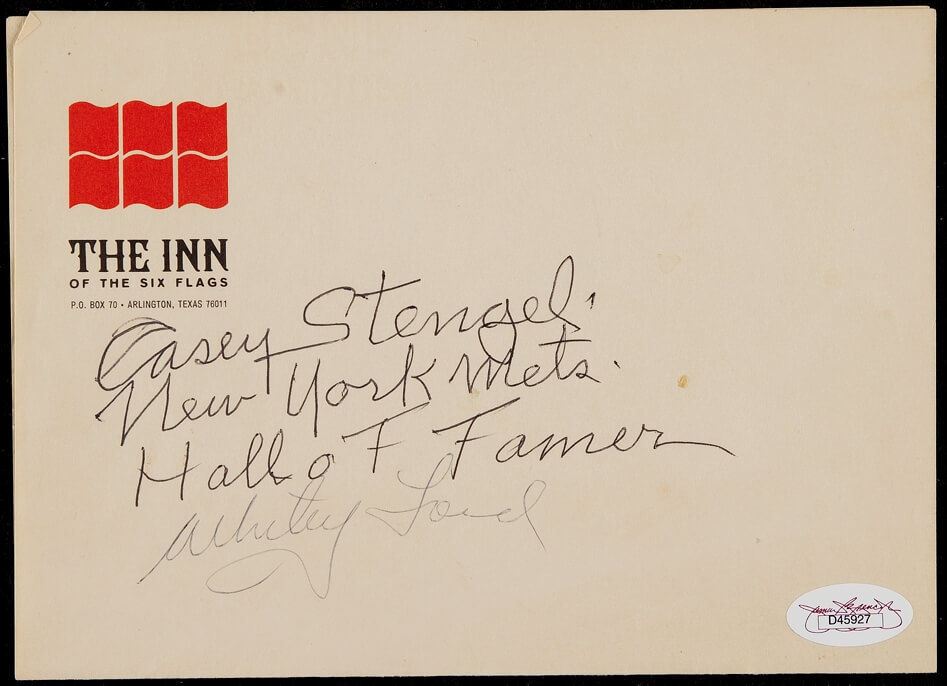 THE INN
OF THE SIX FLAGS
P.O. BOX 70 • ARLINGTON, TEXAS 76011
Casey Stengel.
New York Mets.
Hall oF Famer
Whitey Ford
D45927